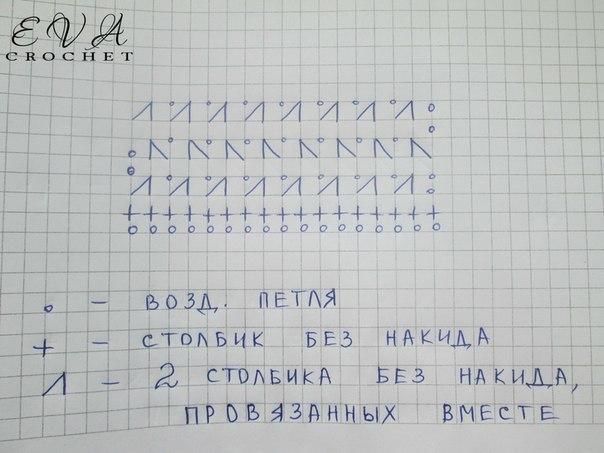 EVA
CROCHET
o – ВОЗД. ПЕТЛЯ
+ – СТОЛБИК БЕЗ НАКИДА
– 2 СТОЛБИКА БЕЗ НАКИДА,
ПРОВЯЗАННЫХ ВМЕСТЕ